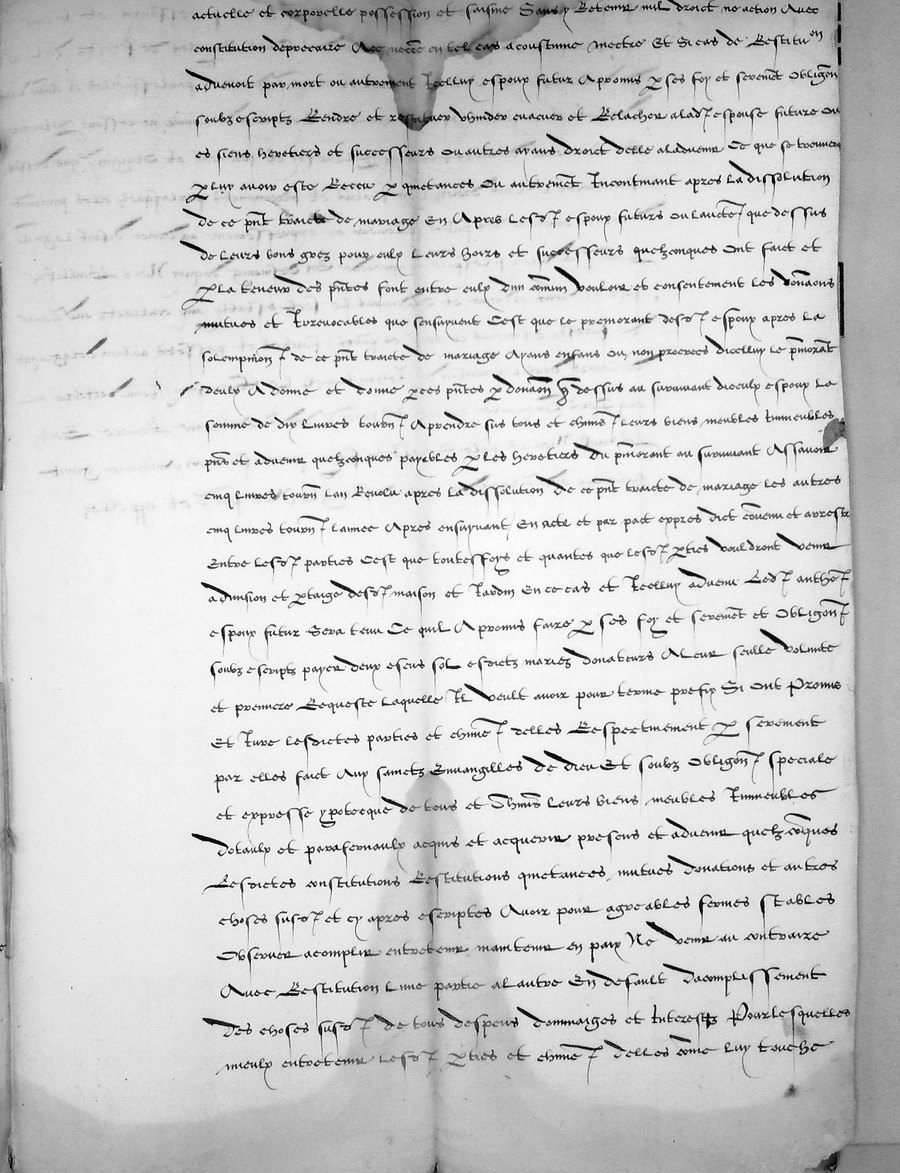 actuelle et corporelle possession et saisine Sans y Retenir nul droict ne action Avec
constitution de precaire Avec necere en tel cas acoustume mectre Et Si cas de Restituon
advenoit par mort ou autrement Icelluy espoux futur A promis p ses foy et serement Obligon
soubz escriptz Rendre et restituer vuinder evacuer et Relacher a lad espouse future Ou
es siens heretiers et successeurs Ou autres ayans droict delle aladvenir Ce que se trouvera
p luy avoir este Receu p quictances Ou autrement Incontinant apres La dissolution
de ce pnt traicte de mariage En Apres Lesd espoux futurs Ou lauctem que dessus
de Leurs bons grez pour eulx Leurs hoirs et successeurs quelzconques Ont faict et
p la teneur des pntes font entre eulx dun comun vouloir et consentement Les donaons
mutues et Irrevocables que sensuyvent Cest que le premorant desd espoux apres La
solempnion de ce pnt traicte de mariage Ayans enfans Ou non procrees dicelluy Le pmorant
deulx A donne et donne p ces pntes p donaon dessus au survivant diceulx espoux La
somme de dix Livres tourn A prendre sus tous et chms Leurs biens meubles Inmeubles
pns et advenir quelzconques payables p Les heretiers du pmorant au survivant Assavoir
cinq Livres tourn Lan Revolu apres La dissolution de ce pnt traicte de mariage Les autres
cinq Livres tourn Lannee Apres ensuyvant En acte et par pact expres dict covenu et arreste
Entre Lesd parties Cest que toutesfoys et quantes que Lesd pties vouldront venir
a division et ptaige desd maison et Jardin En ce cas et Icelluy advenu Led anthoe
espoux futur Sera tenu Ce quil A promis faire p ses foy et serement et Obligon
soubz escriptz payer deux escus sol esdictz mariez donateurs A Leur seulle volunte
et premiere Requeste Laquelle Il veult avoir pour terme prefix Si Ont Promis
Et Jure Lesdictes parties et chme delles Respectivement p serement
par elles faict Aux sainctz Envangilles de dieu Et soubz Obligon speciale
et expresse ypotecque de tous et chms Leurs biens meubles Inmeubles
dotaulx et parafernaulx acquis et acquerir presens et advenir quelzcoques
Lesdictes constitutions Restitutions quictances mutues donations et autres
choses susd et cy apres escriptes Avoir pour agreables fermes stables
Observer acomplir entretenir maintenir en paix Ne venir au contraire
Avec Restitution Lune partie al autre En default dacomplissement
des choses susd de tous despens dommaiges et Interestz Pour Lesquelles
mieulx entretenir Lesd pties et chme delles come Luy touche